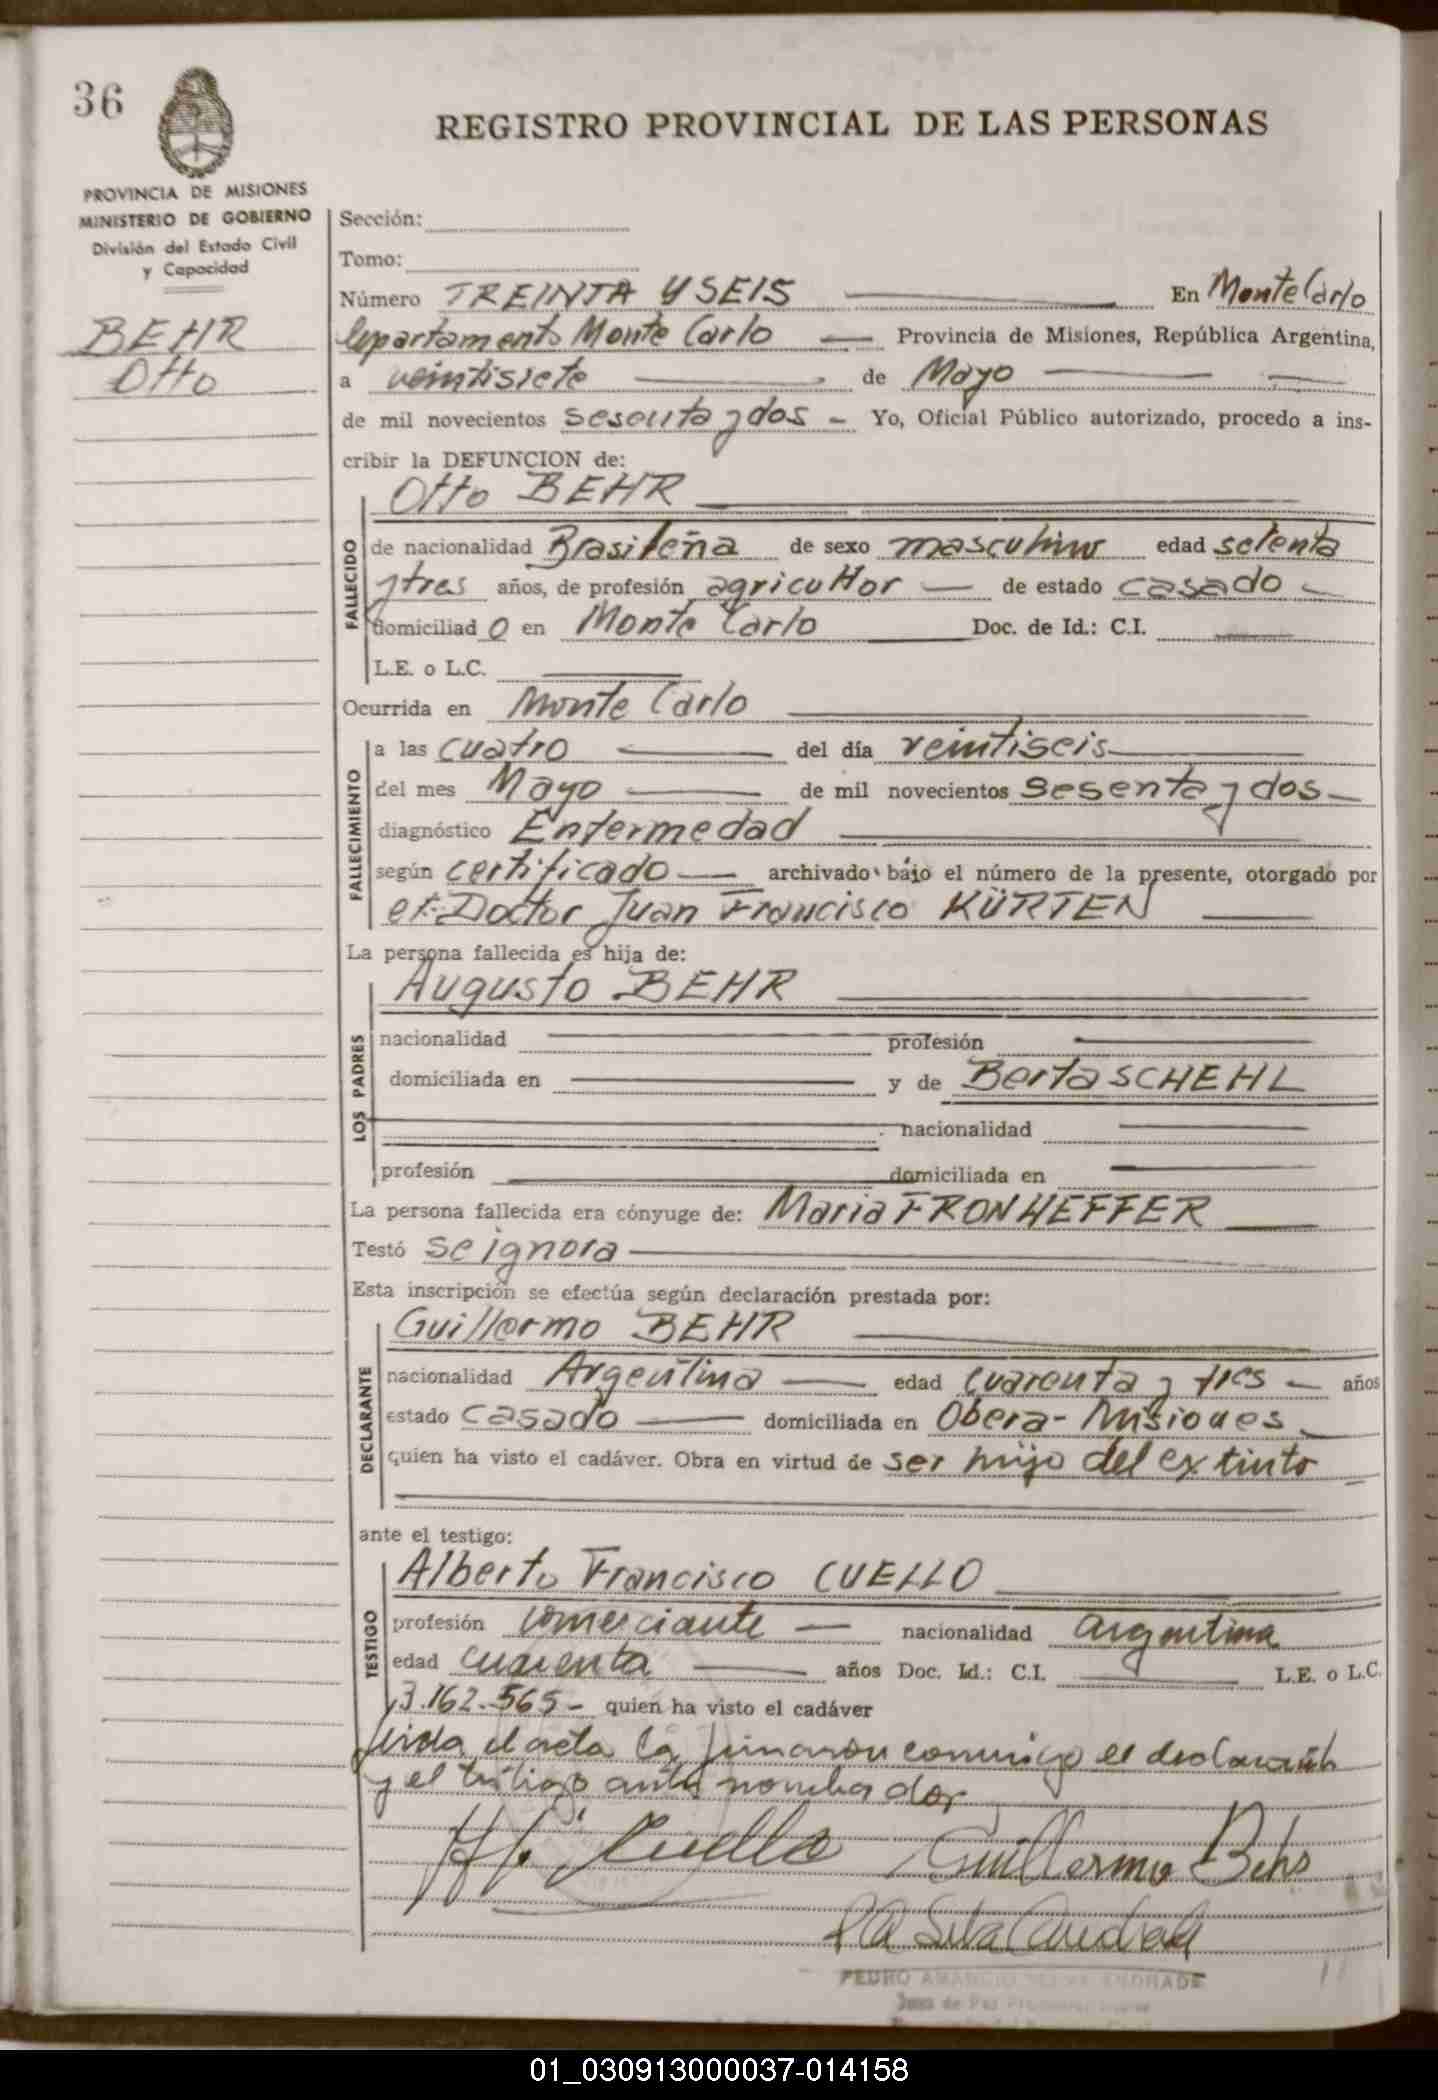 36
REGISTRO PROVINCIAL DE LAS PERSONAS
PROVINCIA DE MISIONES
MINISTERIO DE GOBIERNO
División del Estado Civil
y Capacidad
BEHR
Otto
Sección:
Tomo:
Número TREINTA Y SEIS En Monte Carlo
Departamento Monte Carlo Provincia de Misiones, República Argentina,
a veintisiete de Mayo
de mil novecientos sesenta y dos - Yo, Oficial Público autorizado, procedo a ins-
cribir la DEFUNCION de:
Otto BEHR
FALLECIDO
de nacionalidad Brasileña de sexo masculino edad setenta
y tres años, de profesión agricultor de estado casado
domiciliad o en Monte Carlo Doc. de Id.: C.I.
L.E. o L.C.
Ocurrida en Monte Carlo
FALLECIMIENTO
a las cuatro del día veintiseis
del mes Mayo de mil novecientos sesenta y dos
diagnóstico Enfermedad
según certificado archivado bajo el número de la presente, otorgado por
el Doctor Juan Francisco KÜRTEN
La persona fallecida es hija de:
Augusto BEHR
LOS PADRES
nacionalidad profesión
domiciliada en y de Berta SCHEHL
nacionalidad
profesión domiciliada en
La persona fallecida era cónyuge de: Maria FRONHEFFER
Testó se ignora
Esta inscripción se efectúa según declaración prestada por:
Guillermo BEHR
DECLARANTE
nacionalidad Argentina edad cuarenta y tres años
estado casado domiciliada en Obera - Misiones
quien ha visto el cadáver. Obra en virtud de ser hijo del extinto
ante el testigo:
Alberto Francisco CUELLO
TESTIGO
profesión comerciante nacionalidad argentina
edad cuarenta años Doc. Id.: C.I. L.E. o L.C.
3.162.565 - quien ha visto el cadáver
Leida el acta la firmaron conmigo el declarante
y el testigo antes nombrados
Cuello Guillermo Behr
PA Silva Andrade
PEDRO AMANCIO SILVA ANDRADE
Juez de Paz
01_030913000037-014158